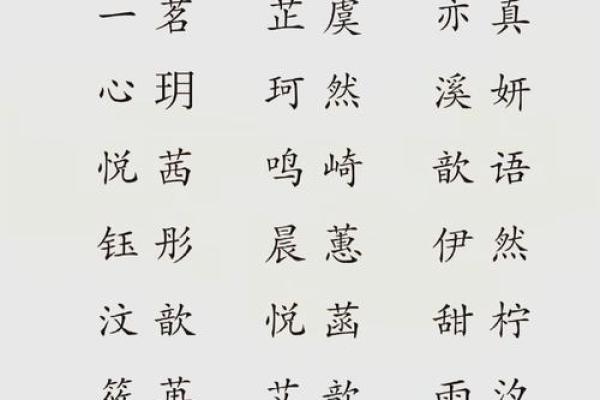 一茗 芷虞 亦真
心玥 珂然 溪妍
悦茜 鸣崎 歆语
钰彤 晨蕙 伊然
汶歆 悦菡 甜柠
筱苒 艾歆 雨汐